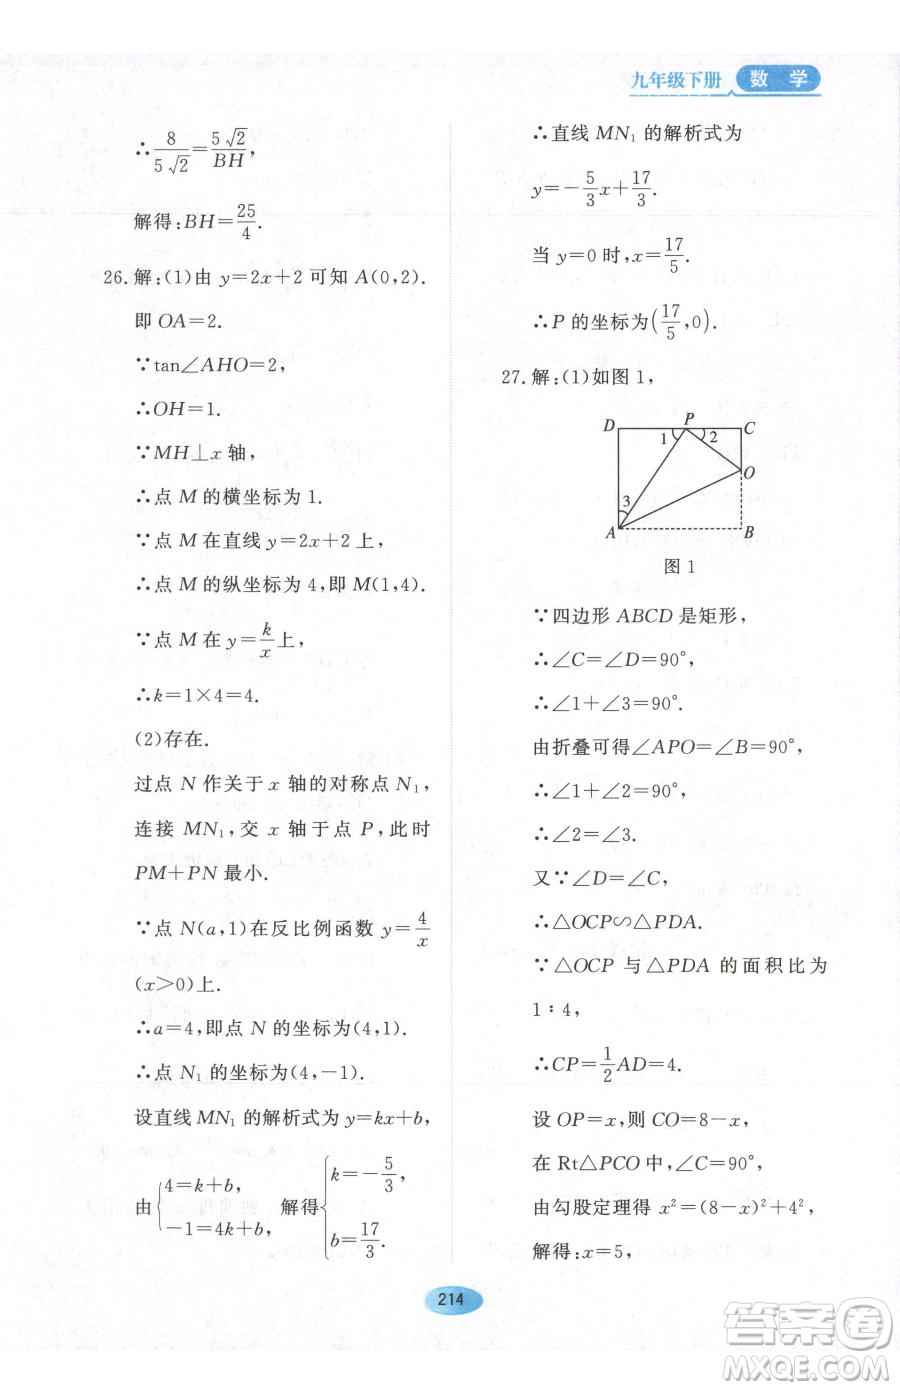 九年级下册 数 学
∴8/(5√2)=5√2/BH,
解得:BH=25/4.
26.解:(1)由 y=2x+2 可知 A(0,2).
即 OA=2.
∵tan∠AHO=2,
∴OH=1.
∵MH⊥x 轴,
∴点 M 的横坐标为 1.
∵点 M 在直线 y=2x+2 上,
∴点 M 的纵坐标为 4,即 M(1,4).
∵点 M 在 y=k/x 上,
∴k=1×4=4.
(2)存在.
过点 N 作关于 x 轴的对称点 N₁,
连接 MN₁,交 x 轴于点 P,此时
PM+PN 最小.
∵点 N(a,1)在反比例函数 y=4/x
(x>0)上.
∴a=4,即点 N 的坐标为(4,1).
∴点 N₁ 的坐标为(4,-1).
设直线 MN₁ 的解析式为 y=kx+b,
由{4=k+b, -1=4k+b, 解得{k=-5/3, b=17/3.
∴直线 MN₁ 的解析式为
y=-5/3x+17/3.
当 y=0 时,x=17/5.
∴P 的坐标为(17/5,0).
27.解:(1)如图 1,
D P C
1 2
O
3
A B
图 1
∵四边形 ABCD 是矩形,
∴∠C=∠D=90°,
∴∠1+∠3=90°.
由折叠可得∠APO=∠B=90°,
∴∠1+∠2=90°.
∴∠2=∠3.
又∵∠D=∠C,
∴△OCP∽△PDA.
∵△OCP 与△PDA 的面积比为
1∶4,
∴CP=1/2AD=4.
设 OP=x,则 CO=8-x,
在 Rt△PCO 中,∠C=90°,
由勾股定理得 x²=(8-x)²+4²,
解得:x=5,
214
答案圈
MXQE.COM